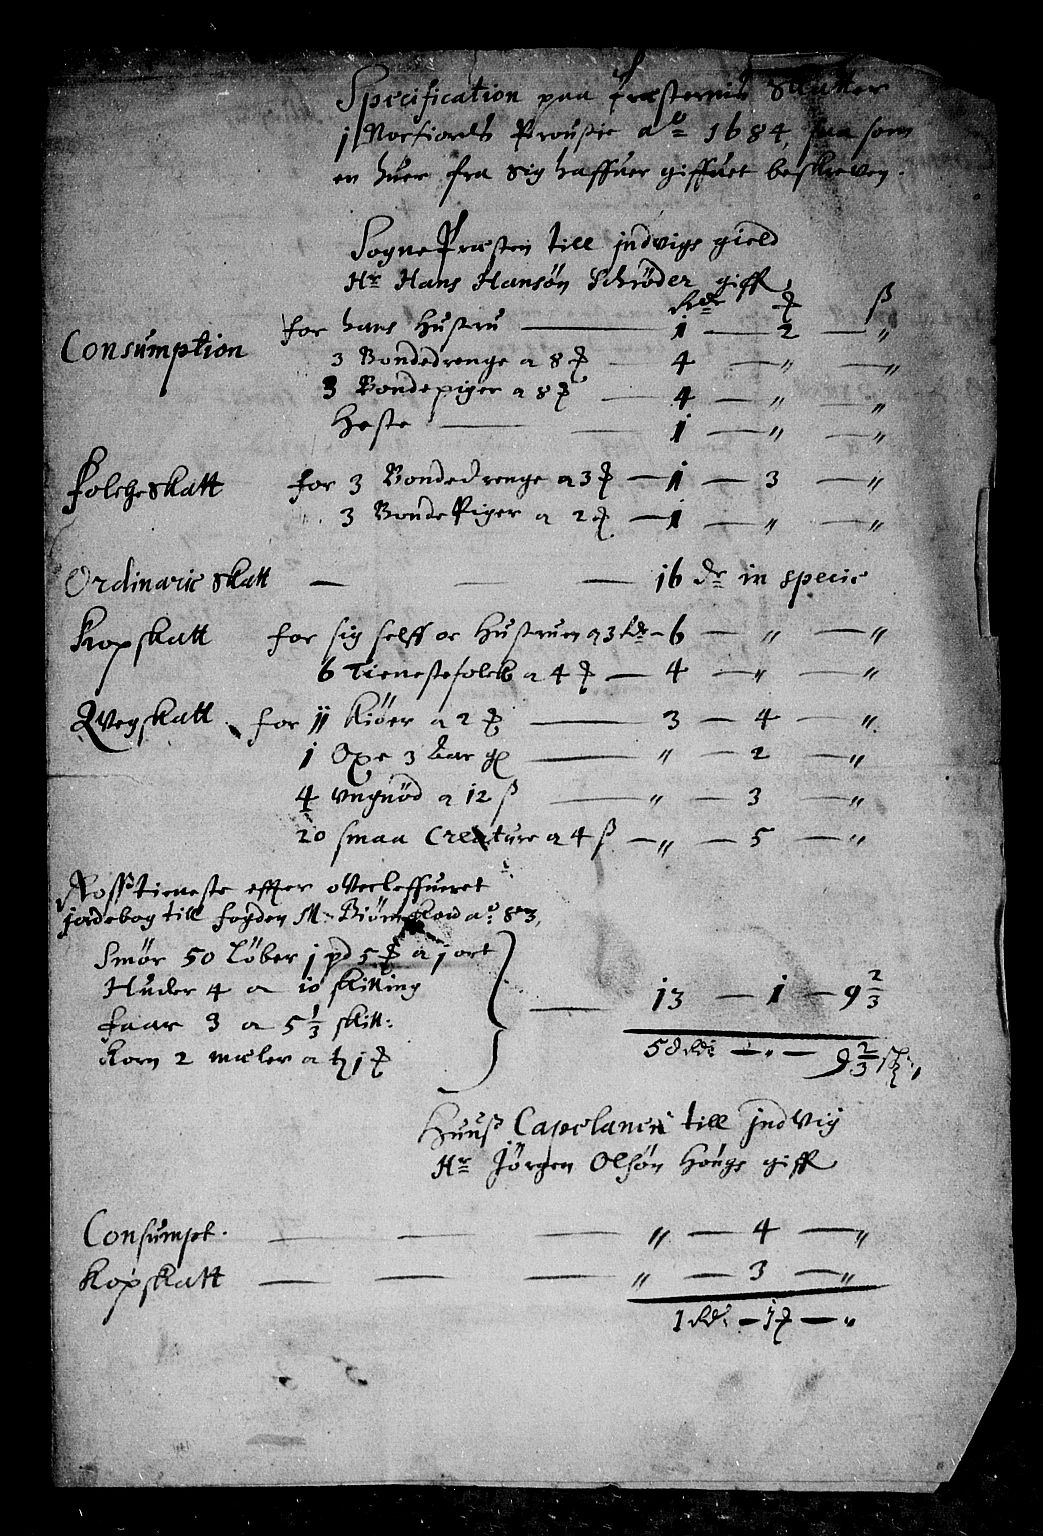 Specification paa Præsternis Skatter
j Norfiords Proustie a° 1684, saa som
en huer fra sig haffuer giffuet beskreven.
Sogne Præsten till jndvigs gield
Hr Hans Hansøn Schrøder giff,
Rdr ß
Consumption for hans Hustru — 1 — 2 — "
3 Bondedrenge a 8 — 4 — " — "
3 Bondepiger a 8 — 4 — " — "
Heste — 1 — " — "
Folcheskatt for 3 Bondedrenge a 3 — 1 — 3 — "
3 Bonde Piger a 2 — 1 — " — "
Ordinarie Skatt — 16 dr in specie
Kopskatt for sig selff oc Hustruen a 3 Rdr — 6 — " — "
6 Tienestefolck a 4 — 4 — " — "
Qvegskatt for jj kiöer a 2 — 3 — 4 — "
1 Oxe 3 Aar gl — " — 2 — "
4 Vngnöd a 12 ß — " — 3 — "
20 smaa Creature a 4 ß — " — 5 — "
Rosstieneste effter oVerleffueret
jordebog till fogden a° 83,
Smör 50 Löber j pd 5 a j ort
Huder 4 a 10 skilling
faar 3 a 5 1/3 skill:
Korn 2 mæler a j
— 13 — 1 — 9 2/3
58 Rdr — " — 9 2/3 ß,
Huuß Capelanen till jndvig
Hr Jörgen Olsön Hougs giff
Consumpt. — — — " — 4 — "
Kopskatt — — — " — 3 — "
1 Rdr. — 1 — "